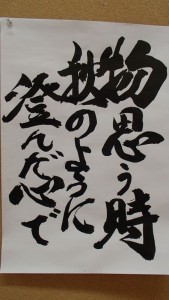 物思う時
秋のように
澄んだ心で